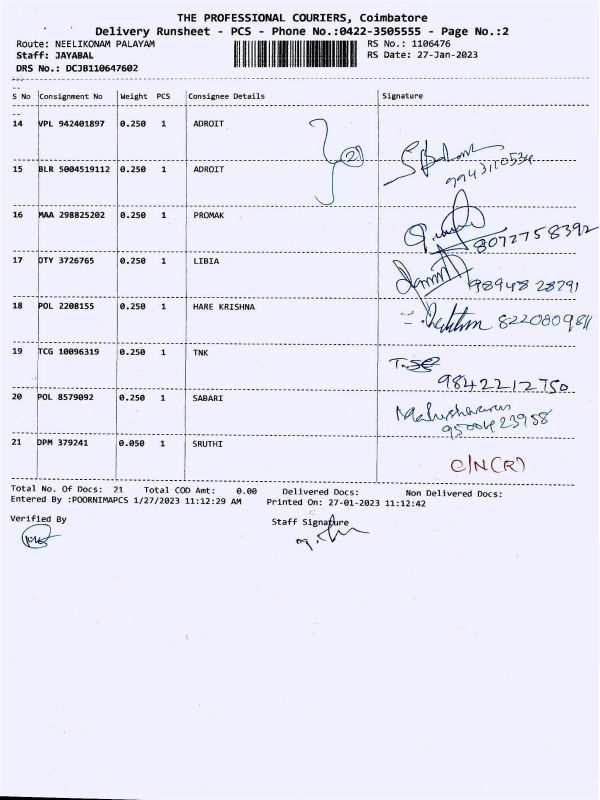 THE PROFESSIONAL COURIERS, Coimbatore
Delivery Runsheet - PCS - Phone No.:0422-3505555 - Page No.:2
Route: NEELIKONAM PALAYAM RS No.: 1106476
Staff: JAYABAL RS Date: 27-Jan-2023
DRS No.: DCJB110647602
S No Consignment No Weight PCS Consignee Details Signature
14 VPL 942401897 0.250 1 ADROIT
15 BLR 5004519112 0.250 1 ADROIT
9943110534
16 MAA 298825202 0.250 1 PROMAK
8072758392
17 OTY 3726765 0.250 1 LIBIA
98948 28291
18 POL 2208155 0.250 1 HARE KRISHNA
8220009811
19 TCG 10096319 0.250 1 TNK
9842212750
20 POL 8579092 0.250 1 SABARI
9500423958
21 DPM 379241 0.050 1 SRUTHI
C/N(R)
Total No. Of Docs: 21 Total COD Amt: 0.00 Delivered Docs: Non Delivered Docs:
Entered By :POORNIMAPCS 1/27/2023 11:12:29 AM Printed On: 27-01-2023 11:12:42
Verified By Staff Signature